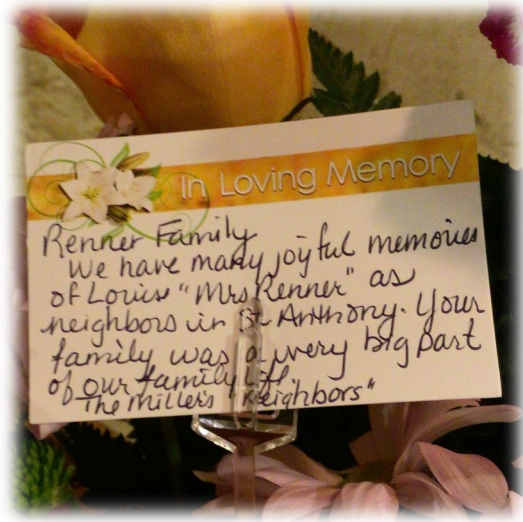 In Loving Memory
Renner Family
We have many joyful memories
of Louise "Mrs Renner" as
neighbors in St Anthony. Your
family was a very big part
of our family life.
The Millers "Neighbors"